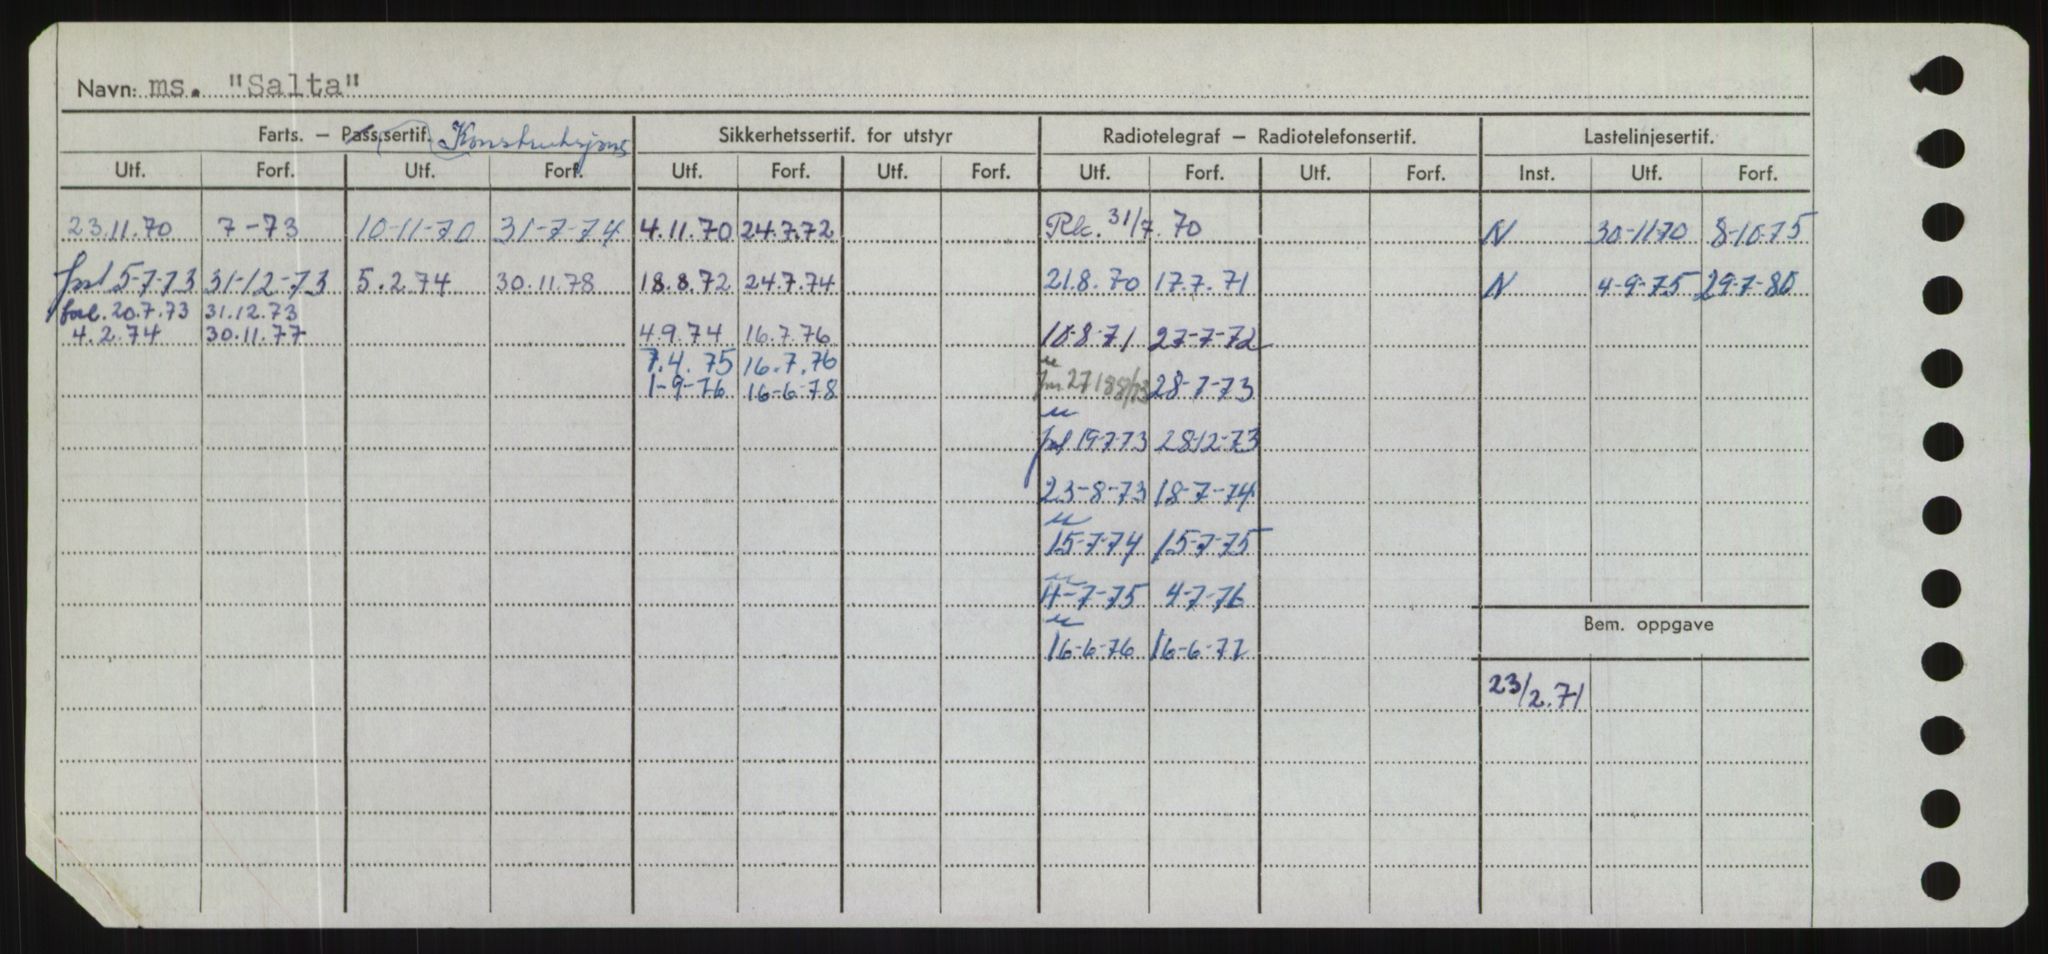 Navn: ms. "Salta"
Farts. – Pass.sertif. Konstruksjons Sikkerhetssertif. for utstyr Radiotelegraf – Radiotelefonsertif. Lastelinjesertif.
Utf. Forf. Utf. Forf. Utf. Forf. Utf. Forf. Utf. Forf. Utf. Forf. Inst. Utf. Forf.
23.11.70 7-73 10-11-70 31-7-74 4.11.70 24.7.72 31/7. 70 N 30-11-70 8-10-75
5-7-73 31-12-73 5.2.74 30.11.78 18.8.72 24.7.74 21.8.70 17.7.71 N 4-9-75 29-7-80
20.7.73 31.12.73
4.2.74 30.11.77 4.9.74 16.7.76 10-8-71 27-7-72
7.4.75 16.7.76
1-9-76 16-6-78 28-7-73
19-7-73 28-12-73
23-8-73 18-7-74
15-7-74 15-7-75
4-7-75 4-7-76
Bem. oppgave
16-6-76 16-6-77
23/2.71